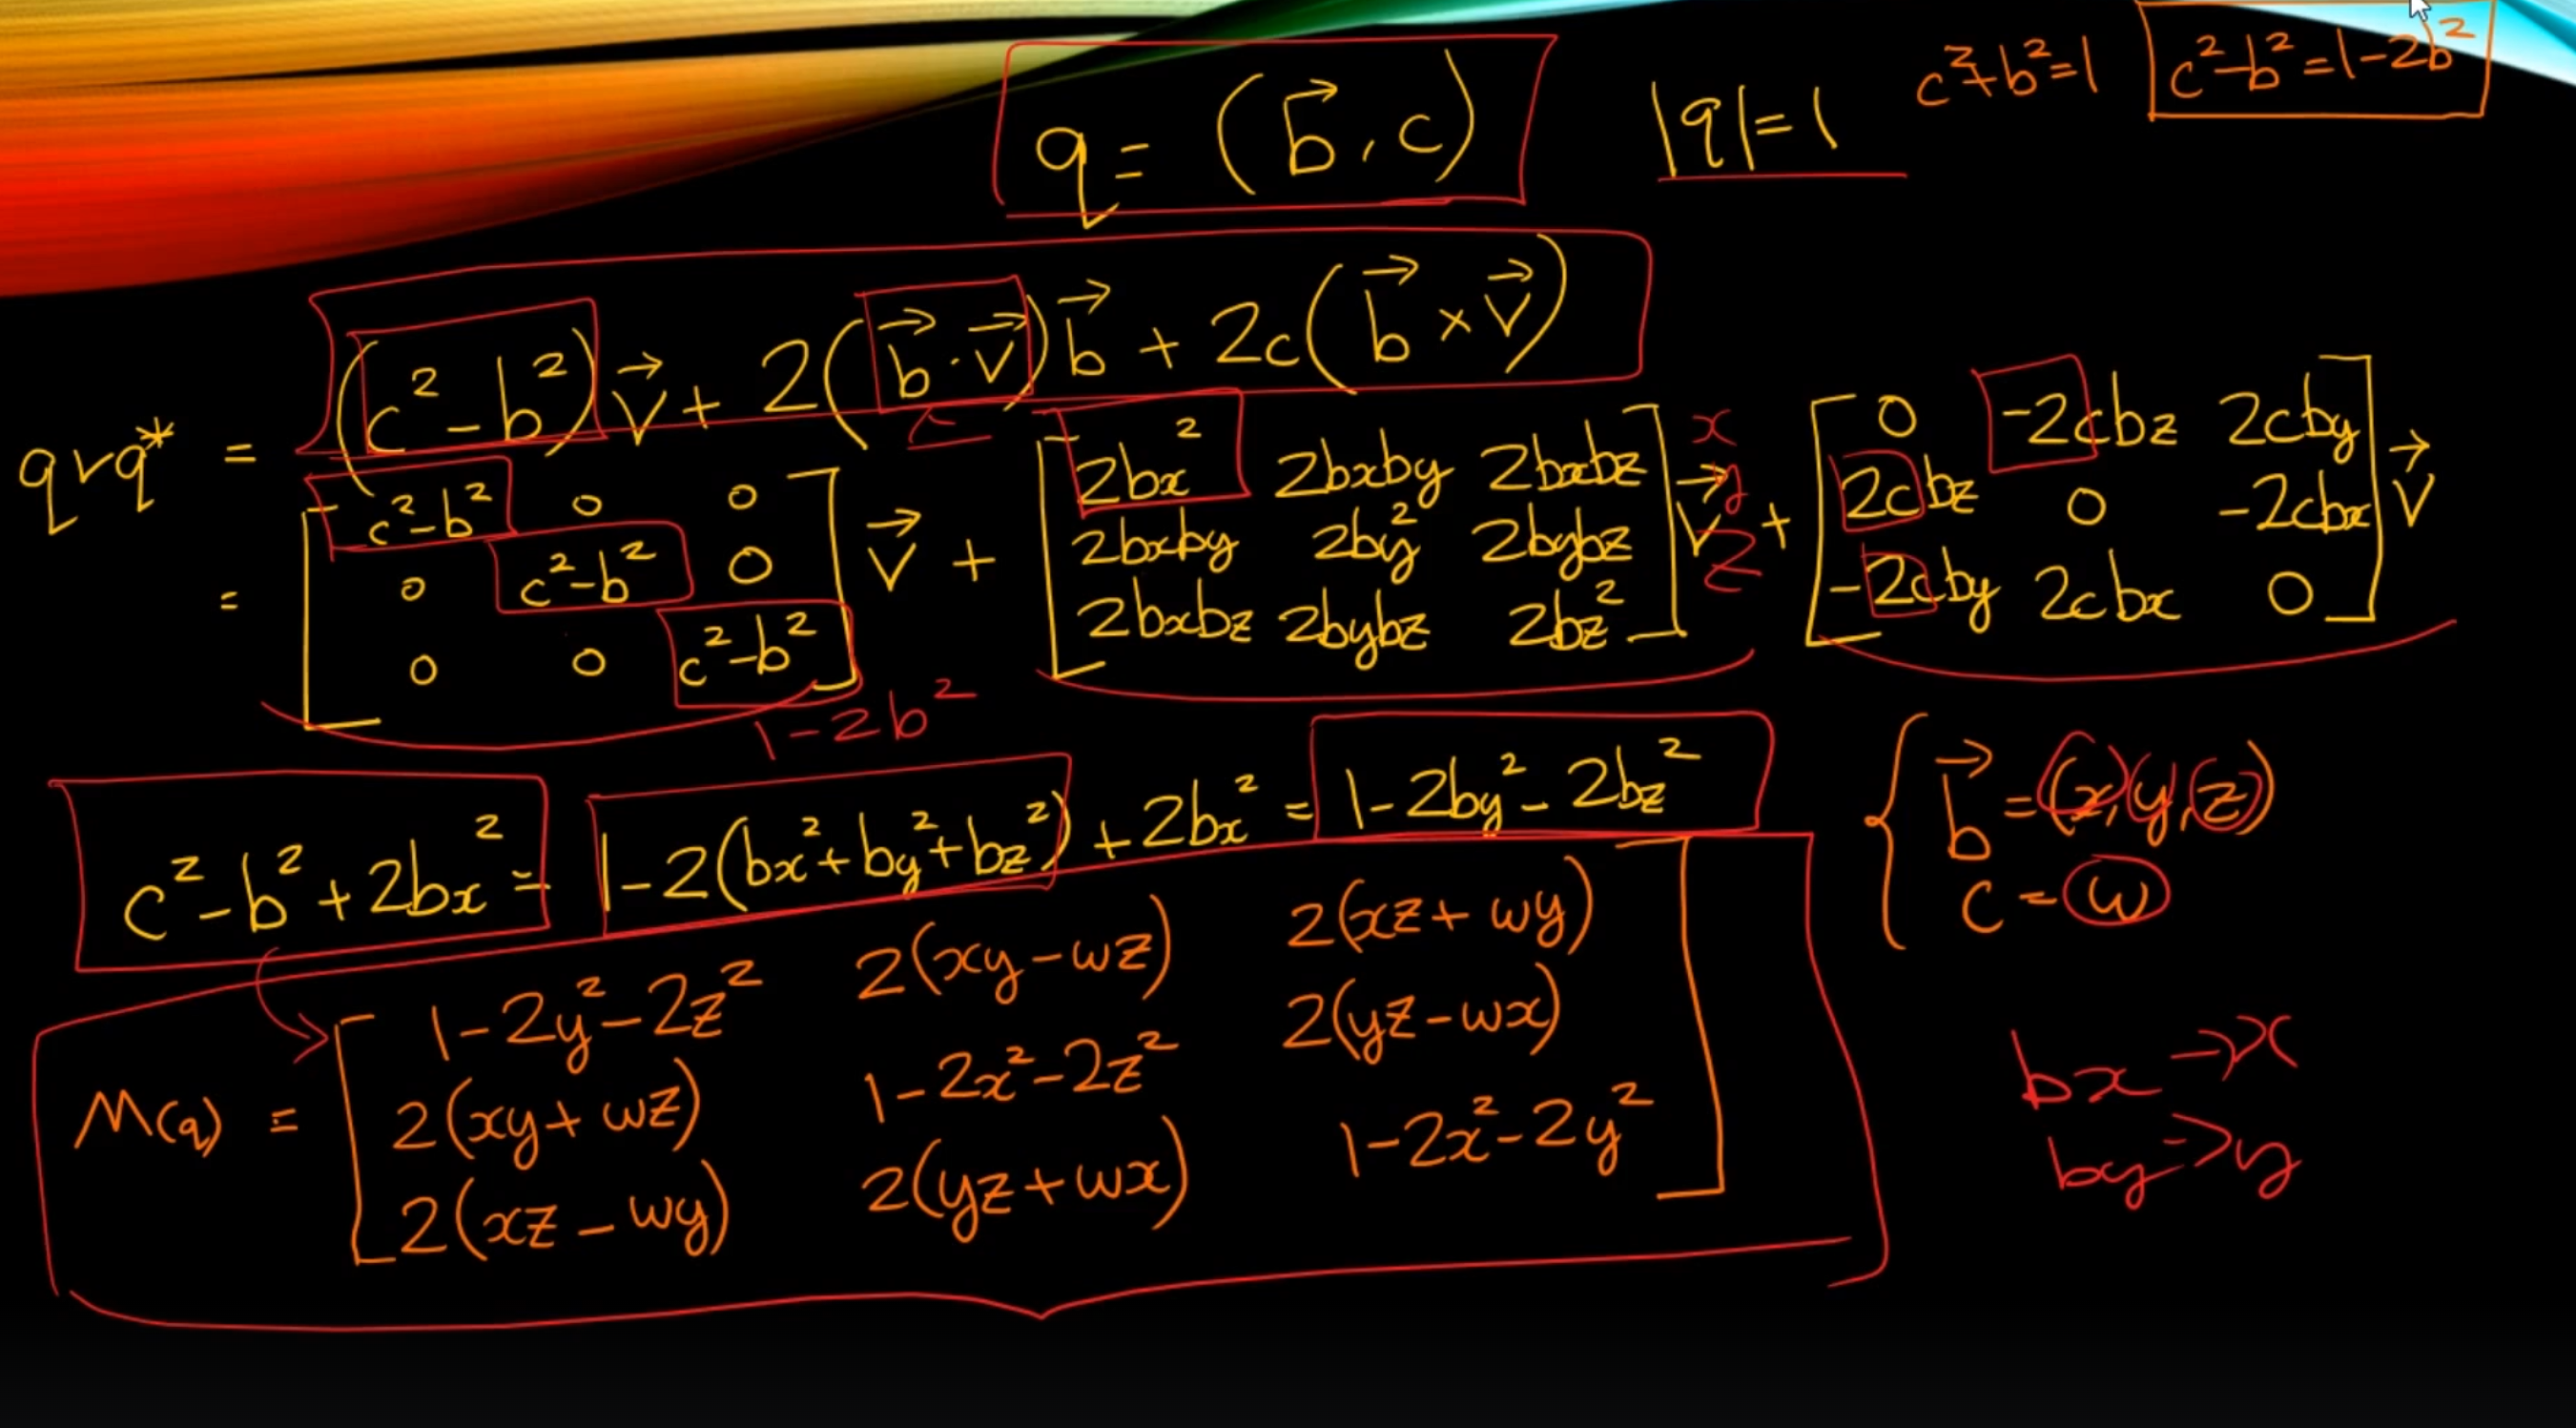 q = (b⃗, c)   |q| = 1   c²+b²=1   c²-b²=1-2b²
qvq* = (c²-b²)v⃗ + 2(b⃗·v⃗)b⃗ + 2c(b⃗×v⃗)
= [c²-b² 0 0; 0 c²-b² 0; 0 0 c²-b²] v⃗ + [2bx² 2bxby 2bxbz; 2bxby 2by² 2bybz; 2bxbz 2bybz 2bz²] v⃗ + [0 -2cbz 2cby; 2cbz 0 -2cbx; -2cby 2cbx 0] v⃗
x
y
z
1-2b²
c²-b²+2bx² = 1-2(bx²+by²+bz²)+2bx² = 1-2by²-2bz²
{ b⃗ = (x,y,z)
c = w
M(q) = [1-2y²-2z² 2(xy-wz) 2(xz+wy); 2(xy+wz) 1-2x²-2z² 2(yz-wx); 2(xz-wy) 2(yz+wx) 1-2x²-2y²]
bx → x
by → y